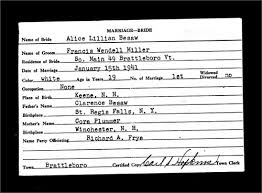 MARRIAGE—BRIDE
Name of Bride Alice Lillian Besaw
Name of Groom Francis Wendell Miller
Residence of Bride So. Main 49 Brattleboro Vt.
Date of Marriage January 15th 1941
Color White Age in Years 19 No. of Marriage 1st Widowed Divorced no
Occupation None
Place of Birth Keene, N. H.
Father's Name Clarence Besaw
Place of Birth St. Regis Falls, N. Y.
Mother's Name Cora Plummer
Place of Birth Winchester, N. H.
Name Party Officiating Richard A. Frye
Town Brattleboro Certified Copy Carl J. Hopkins Town Clerk